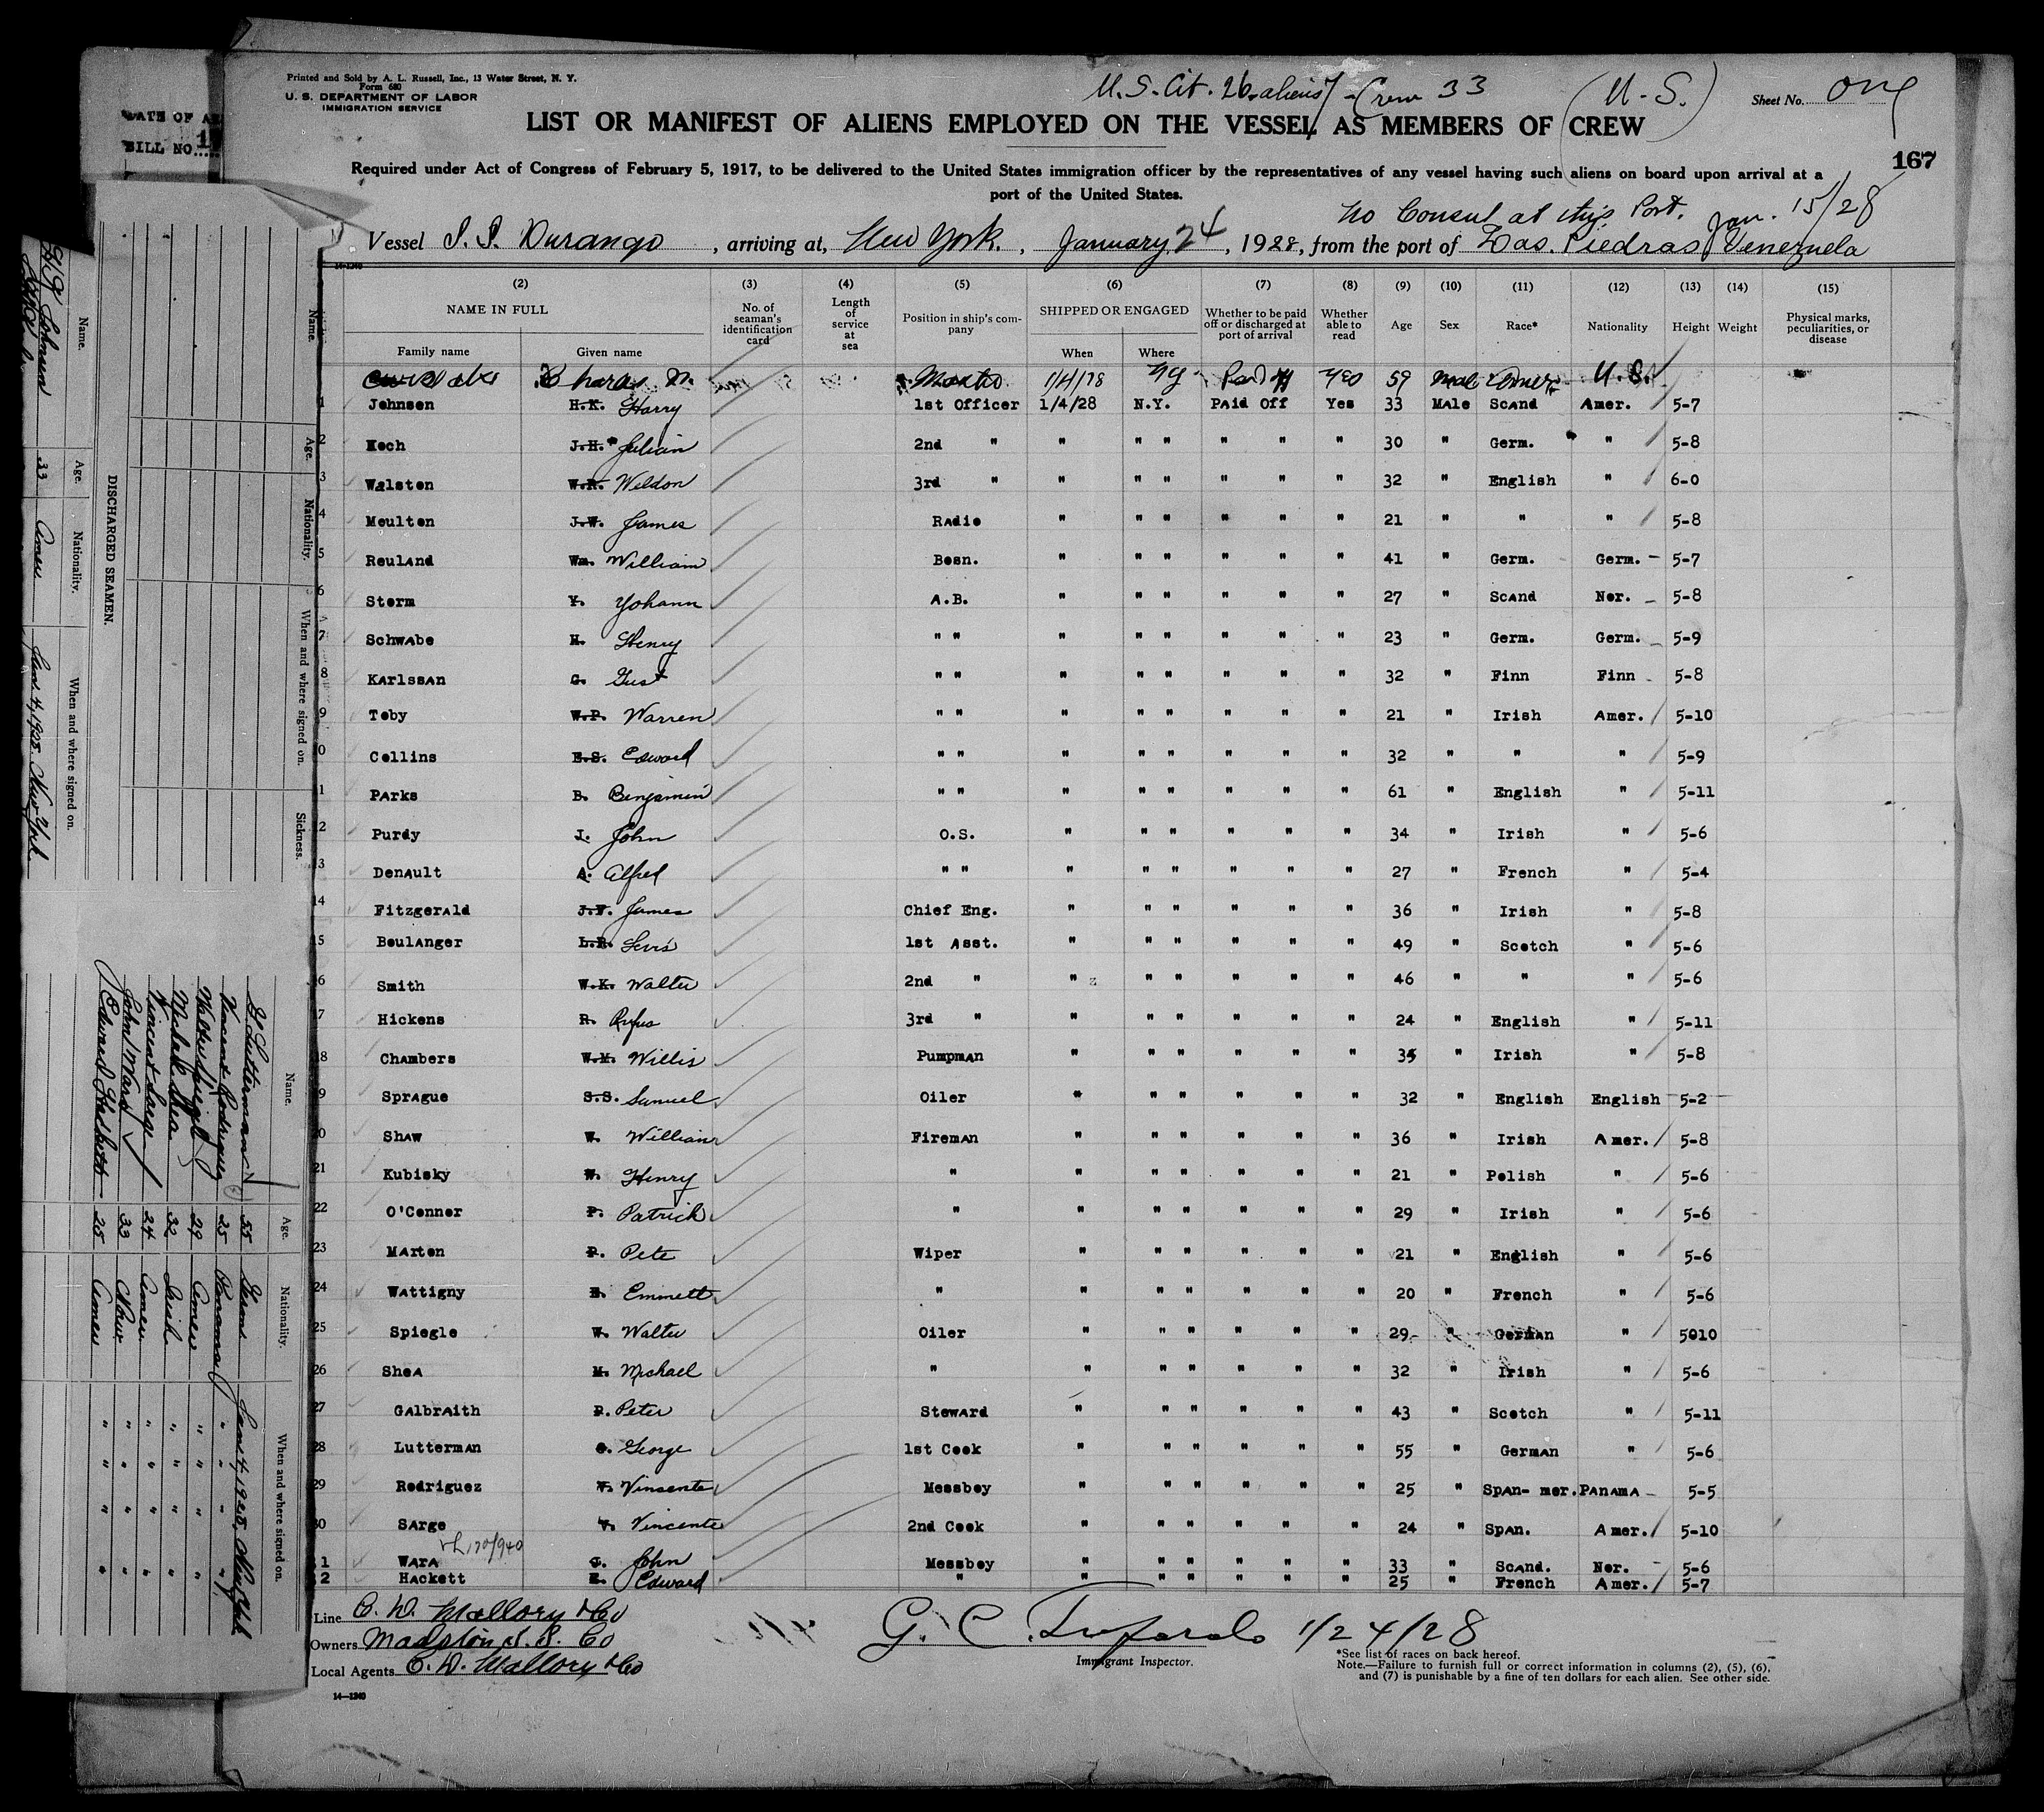 Printed and Sold by A. L. Russell, Inc., 13 Water Street, N. Y.
Form 680
U. S. DEPARTMENT OF LABOR
IMMIGRATION SERVICE
U.S. Cit. 26 aliens 7 - Crew 33 (U-S.) Sheet No. One
LIST OR MANIFEST OF ALIENS EMPLOYED ON THE VESSEL AS MEMBERS OF CREW
167
Required under Act of Congress of February 5, 1917, to be delivered to the United States immigration officer by the representatives of any vessel having such aliens on board upon arrival at a
port of the United States.
No Consul at this Port. Jan. 15/28
Vessel S.S. Durango, arriving at, New York., January 24, 1928, from the port of Las. Piedras Venezuela
14-1240
(2) (3) (4) (5) (6) (7) (8) (9) (10) (11) (12) (13) (14) (15)
NAME IN FULL No. of seaman's identification card Length of service at sea Position in ship's company SHIPPED OR ENGAGED Whether to be paid off or discharged at port of arrival Whether able to read Age Sex Race* Nationality Height Weight Physical marks, peculiarities, or disease
Family name Given name When Where
Charles N. Master 1/4/28 NY Paid off Yes 59 Male Amer. U.S.
1 Johnsen H.K. Harry 1st Officer 1/4/28 N.Y. Paid Off Yes 33 Male Scand Amer. 5-7
2 Koch J.H. Julian 2nd " " " " " " " 30 " Germ. " 5-8
3 Walston W.R. Weldon 3rd " " " " " " " 32 " English " 6-0
4 Moulton J.W. James Radio " " " " " " 21 " " " 5-8
5 Rouland Wm. William Bosn. " " " " " " 41 " Germ. Germ. 5-7
6 Storm Y. Yohann A.B. " " " " " " 27 " Scand Nor. 5-8
7 Schwabe H. Henry " " " " " " " " 23 " Germ. Germ. 5-9
8 Karlssan G. Gust " " " " " " " " 32 " Finn Finn 5-8
9 Toby W.P. Warren " " " " " " " " 21 " Irish Amer. 5-10
10 Collins E.S. Edward " " " " " " " " 32 " " " 5-9
11 Parks B. Benjamin " " " " " " " " 61 " English " 5-11
12 Purdy J. John O.S. " " " " " " 34 " Irish " 5-6
13 Denault A. Alfred " " " " " " " " 27 " French " 5-4
14 Fitzgerald J.F. James Chief Eng. " " " " " " 36 " Irish " 5-8
15 Boulanger L.R. Levis 1st Asst. " " " " " " 49 " Scotch " 5-6
16 Smith W.K. Walter 2nd " " " " " " " 46 " " " 5-6
17 Hickens R. Rufus 3rd " " " " " " " 24 " English " 5-11
18 Chambers W.M. Willis Pumpman " " " " " " 35 " Irish " 5-8
19 Sprague S.S. Samuel Oiler " " " " " " 32 " English English 5-2
20 Shaw W. William Fireman " " " " " " 36 " Irish Amer. 5-8
21 Kubisky Henry " " " " " " " 21 " Polish " 5-6
22 O'Connor P. Patrick " " " " " " " 29 " Irish " 5-6
23 Marton P. Pete Wiper " " " " " " 21 " English " 5-6
24 Wattigny E. Emmett " " " " " " " 20 " French " 5-6
25 Spiegle W. Walter Oiler " " " " " " 29 " German " 5010
26 Shea M. Michael " " " " " " " 32 " Irish " 5-6
27 Galbraith P. Peter Steward " " " " " " 43 " Scotch " 5-11
28 Lutterman G. George 1st Cook " " " " " " 55 " German " 5-6
29 Rodriguez V. Vinsente Messboy " " " " " " 25 " Span- mer. Panama 5-5
30 Sarge V. Vincente 2nd Cook " " " " " " 24 " Span. Amer. 5-10
1 Wara J. John Messboy " " " " " " 33 " Scand. Nor. 5-6
2 Hackett E. Edward " " " " " " " 25 " French Amer. 5-7
Line C. D. Mallory & Co
Owners Malston S. S. Co
Local Agents C. D. Mallory & Co
1/24/28
Immigrant Inspector.
*See list of races on back hereof.
Note.—Failure to furnish full or correct information in columns (2), (5), (6),
and (7) is punishable by a fine of ten dollars for each alien. See other side.
14—1240
BILL NO.
DISCHARGED SEAMEN.
Name. Age. Nationality. When and where signed on.
Johnsen 33 Amer Jan. 4, 1928. New York
Name. Age. Nationality. When and where signed on. Sickness.
Name. Age. Nationality. When and where signed on.
G Lutterman 55 Germ Jan 4, 1928, New York
Vincent Rodriguez 25 Panama " "
Walter Spiegle 29 Amer " "
Michael Shea 32 Irish " "
Vincent Sarge 24 Amer " "
John Wara 33 Norw " "
Edward Hackett 25 Amer " "